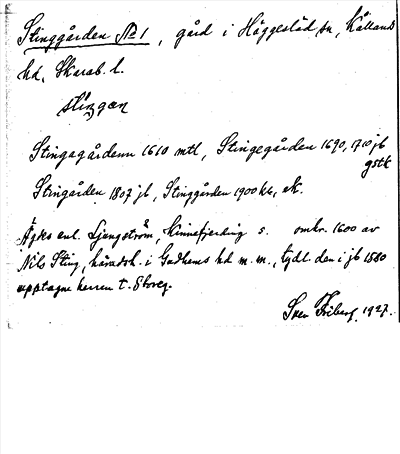 Stinggården No 1, gård i Häggesled sn, Kållands
hd, Skarab. l.
stiŋgan
Stingagårdenn 1610 mtl, Stingegården 1690, 1710 jb
gstk
Stingården 1807 jb, Stinggården 1900 kb, ek.
Ägdes enl. Ljungström, Kinnefjerding s. omkr. 1600 av
Nils Sting, häradsh. i Gudhems hd m. m., tydl. den i jb 1580
upptagne herren t. Storeg.
Sven Friberg 1927.